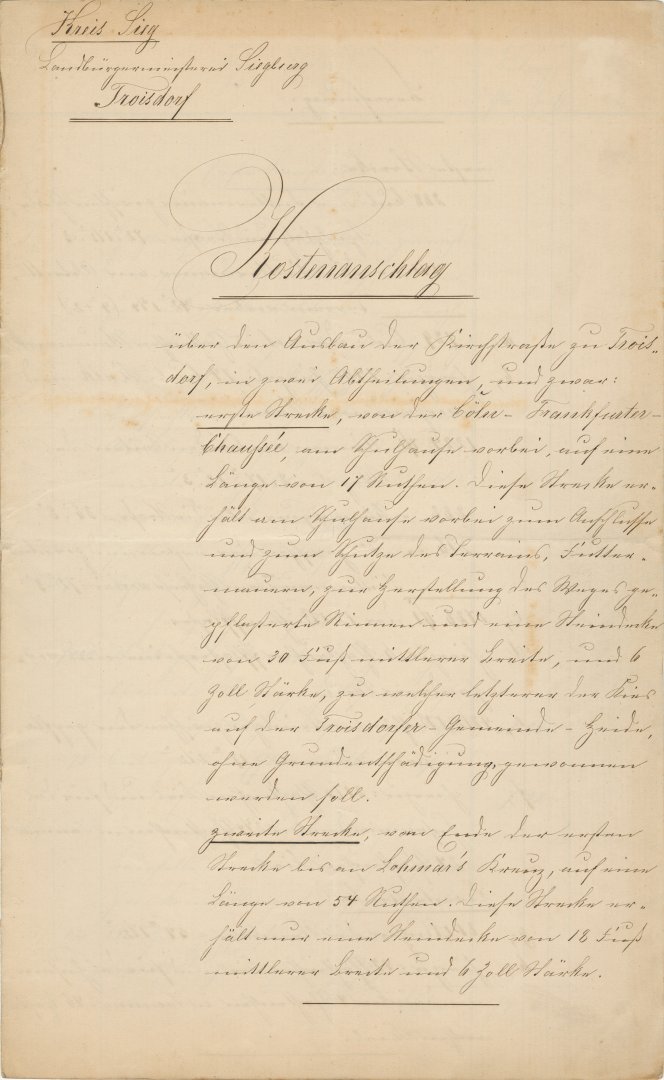 Kreis Sieg
Landbürgermeisterei Siegburg
Troisdorf
Kostenanschlag
über den Ausbau der Kirchstraße zu Trois-
dorf, in zwei Abtheilungen, und zwar:
erste Strecke, von der Cöln- Frankfurter-
Chaussée, am Schulhause vorbei, auf eine
Länge von 17 Ruthen. Diese Strecke er-
hält am Schulhause vorbei zum Anschlusse
und zum Schutze des Terrains, Futter-
mauern, zur Herstellung des Weges ge-
pflasterte Rinnen und eine Steindecke
von 30 Fuß mittlerer Breite, und 6
Zoll Stärke, zu welcher letzterer der Kies
auf der Troisdorfer- Gemeinde- Heide,
ohne Grundentschädigung, gewonnen
werden soll.
zweite Strecke, vom Ende der ersten
Strecke bis an Lohmar's Kreuz, auf eine
Länge von 54 Ruthen. Diese Strecke er-
hält nur eine Steindecke von 12 Fuß
mittlerer Breite und 6 Zoll Stärke.